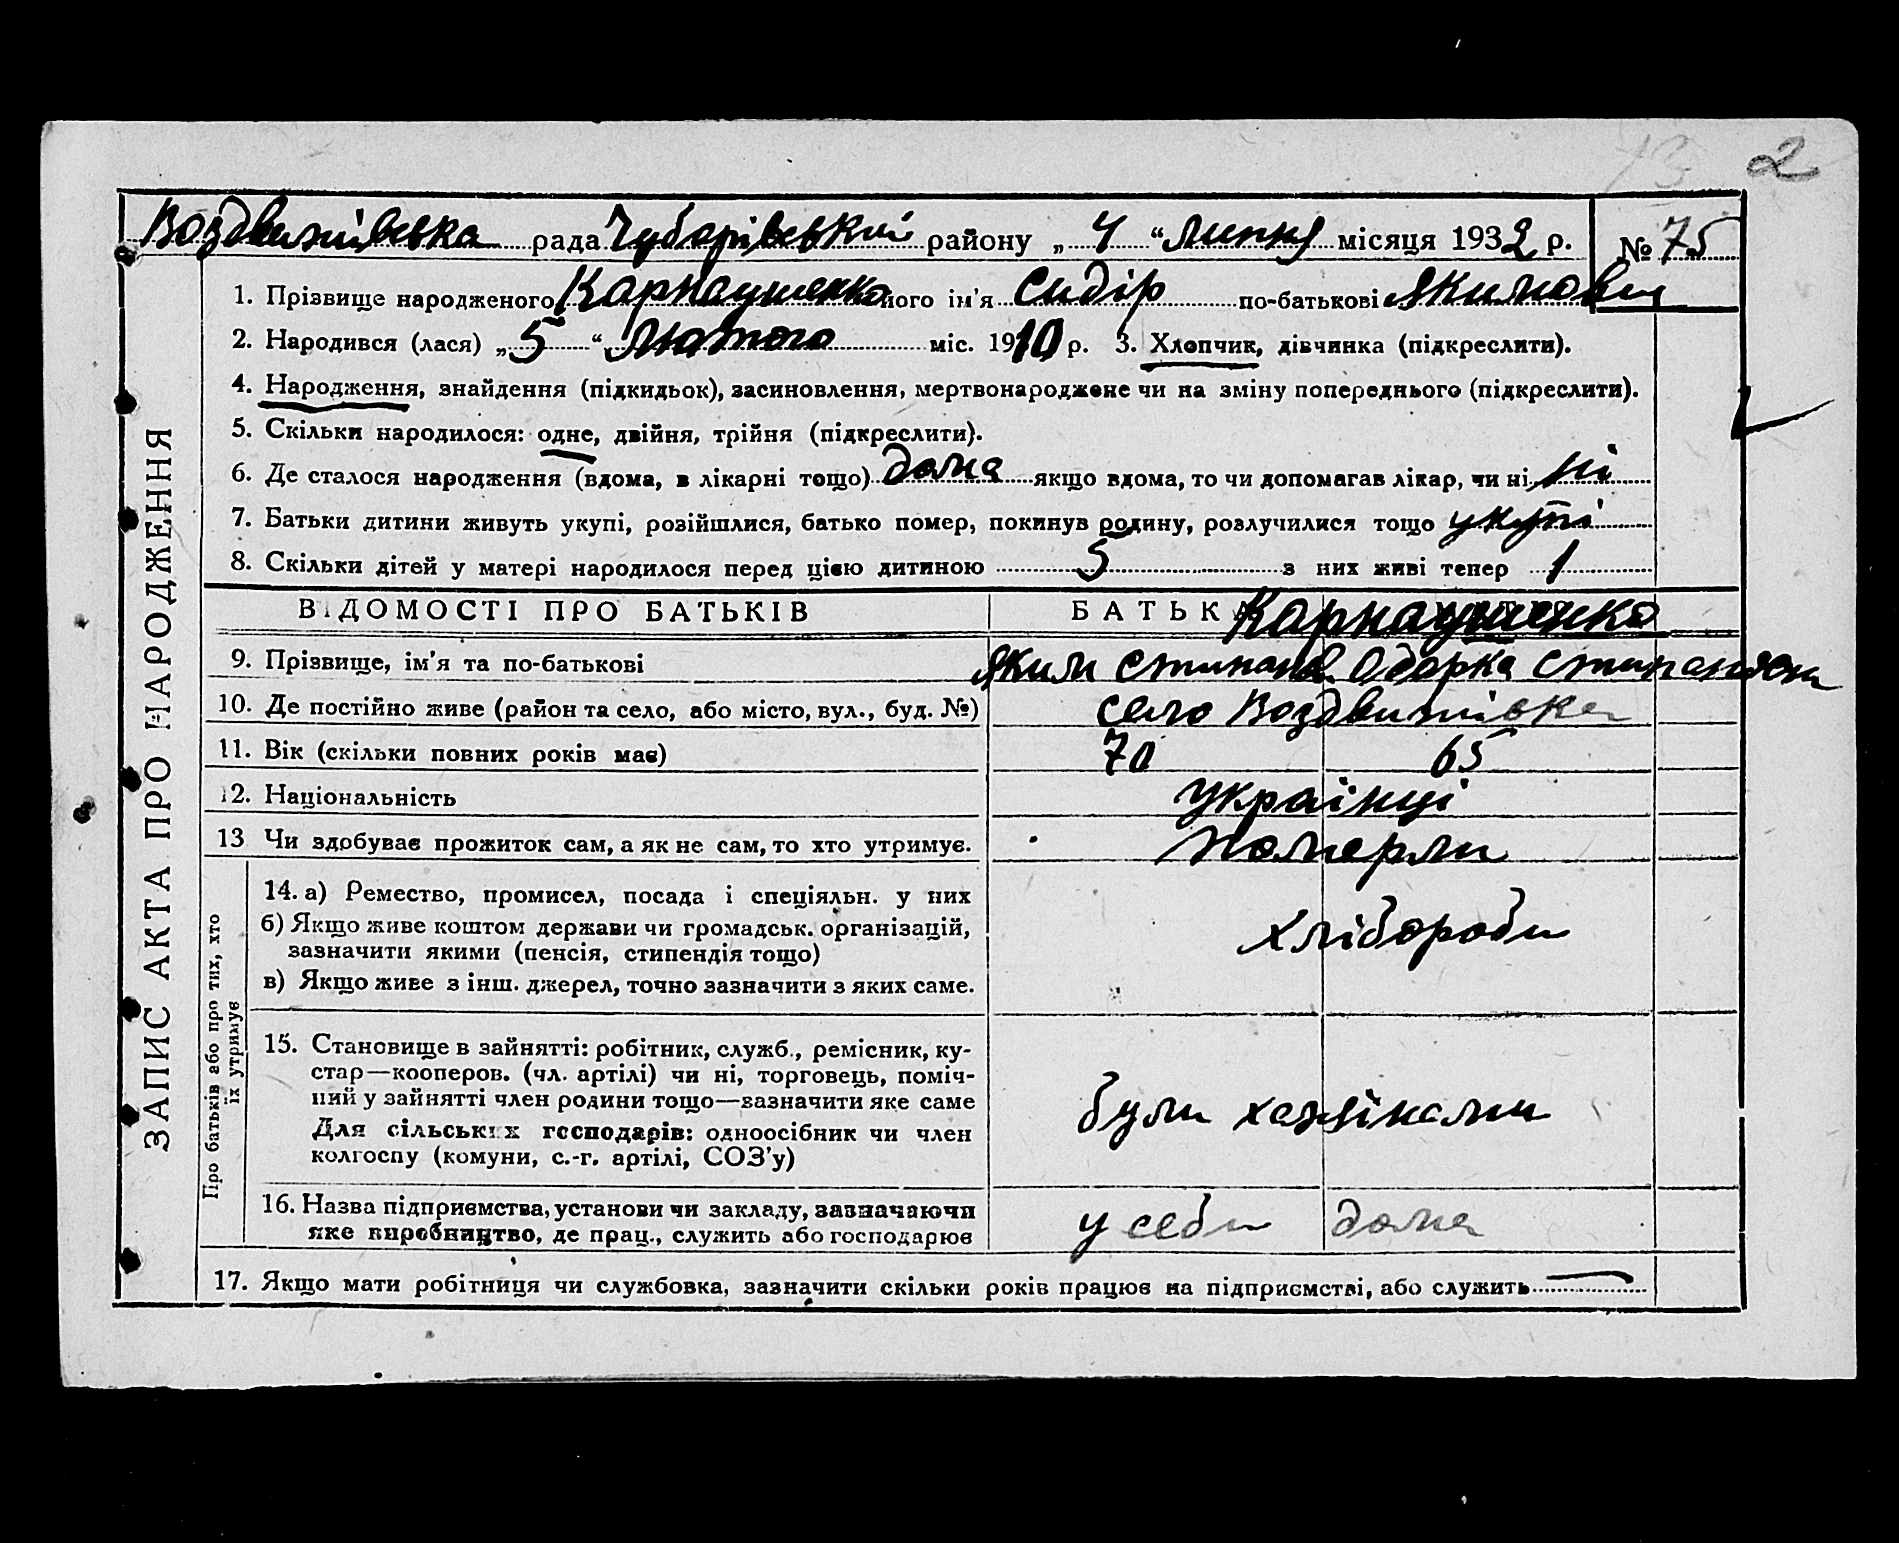 13 2
Воздвижівська рада Чубарівський району „ 4 “ Липня місяця 1932 р. № 75
1. Прізвище народженого Карнаушенко його ім'я Сидір по-батькові Якимович
2. Народився (лася) „ 5 “ Лютого міс. 1910 р. 3. Хлопчик, дівчинка (підкреслити).
4. Народження, знайдення (підкидьок), засиновлення, мертвонароджене чи на зміну попереднього (підкреслити).
5. Скільки народилося: одне, двійня, трійня (підкреслити).
6. Де сталося народження (вдома, в лікарні тощо) дома якщо вдома, то чи допомагав лікар, чи ні ні
7. Батьки дитини живуть укупі, розійшлися, батько помер, покинув родину, розлучилися тощо укупі
8. Скільки дітей у матері народилося перед цією дитиною 5 з них живі тепер 1
ВІДОМОСТІ ПРО БАТЬКІВ БАТЬКА Карнаушенко
9. Прізвище, ім'я та по-батькові Яким Стипанов. Одарка Стипановна
10. Де постійно живе (район та село, або місто, вул., буд. №) село Воздвижівка
11. Вік (скільки повних років має) 70 65
12. Національність українці
13 Чи здобуває прожиток сам, а як не сам, то хто утримує. Померли
14. а) Ремество, промисел, посада і спеціяльн. у них
б) Якщо живе коштом держави чи громадськ. організацій,
зазначити якими (пенсія, стипендія тощо) хлібороби
в) Якщо живе з інш. джерел, точно зазначити з яких саме.
15. Становище в зайнятті: робітник, служб., ремісник, ку-
стар—кооперов. (чл. артілі) чи ні, торговець, поміч-
ний у зайнятті член родини тощо—зазначити яке саме
Для сільських господарів: одноосібник чи член
колгоспу (комуни, с.-г. артілі, СОЗ'у)
були хазяінами
16. Назва підприємства, установи чи закладу, зазначаючи
яке виробництво, де прац., служить або господарює
у себи дома
17. Якщо мати робітниця чи службовка, зазначити скільки років працює на підприємстві, або служить
ЗАПИС АКТА ПРО НАРОДЖЕННЯ
Про батьків або про тих, хто
їх утримує